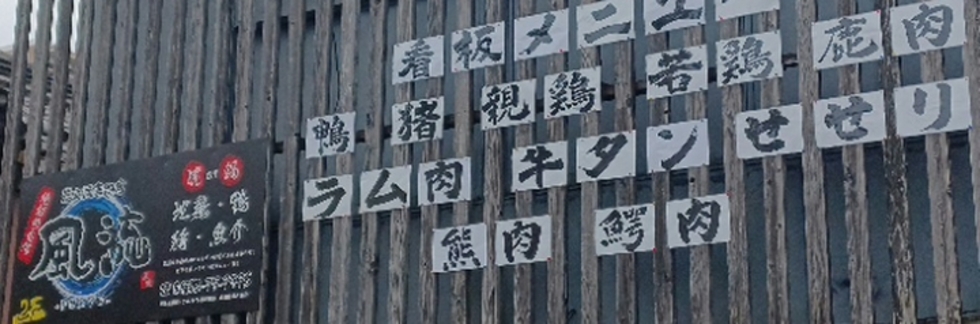 看板メニュー
鴨 猪 親鶏 若鶏 鹿肉
ラム肉 牛タン せせり
熊肉 鰐肉
風流
地鶏・鴨
猪・魚介
2F